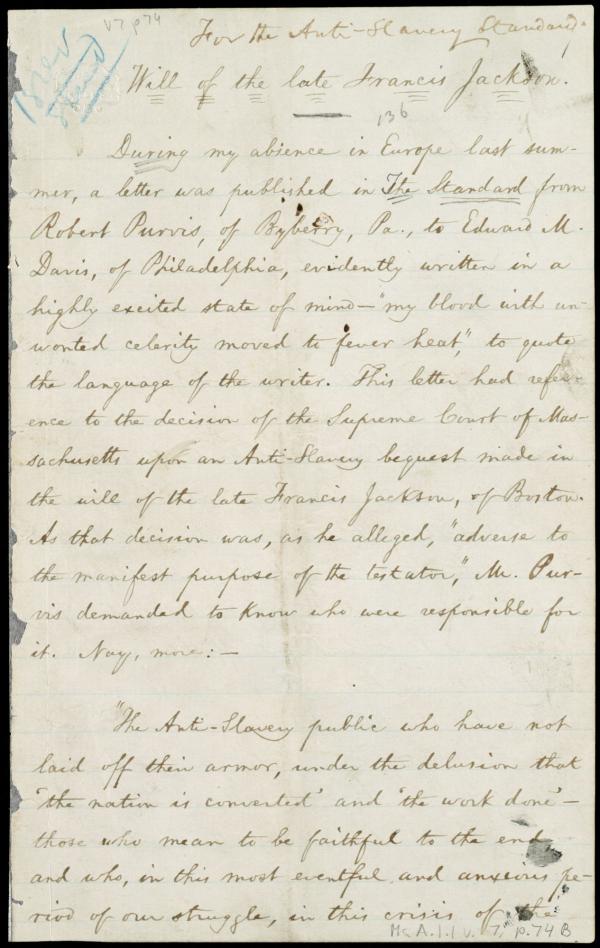 v7 p74
For the Anti-Slavery Standard.
Will of the late Francis Jackson.
136
During my absence in Europe last sum-
mer, a letter was published in The Standard from
Robert Purvis, of Byberry, Pa., to Edward M.
Davis, of Philadelphia, evidently written in a
highly excited state of mind—"my blood with un-
wonted celerity moved to fever heat", to quote
the language of the writer. This letter had refer-
ence to the decision of the Supreme Court of Mas-
sachusetts upon an Anti-Slavery bequest made in
the will of the late Francis Jackson, of Boston.
As that decision was, as he alleged, "adverse to
the manifest purpose of the testator," Mr. Pur-
vis demanded to know who were responsible for
it. Nay, more:—
"The Anti-Slavery public who have not
laid off their armor, under the delusion that
'the nation is converted' and 'the work done'—
those who mean to be faithful to the end,
and who, in this most eventful and anxious pe-
riod of our struggle, in this crisis of the
Ms. A.1.1 v. 7, p. 74 B